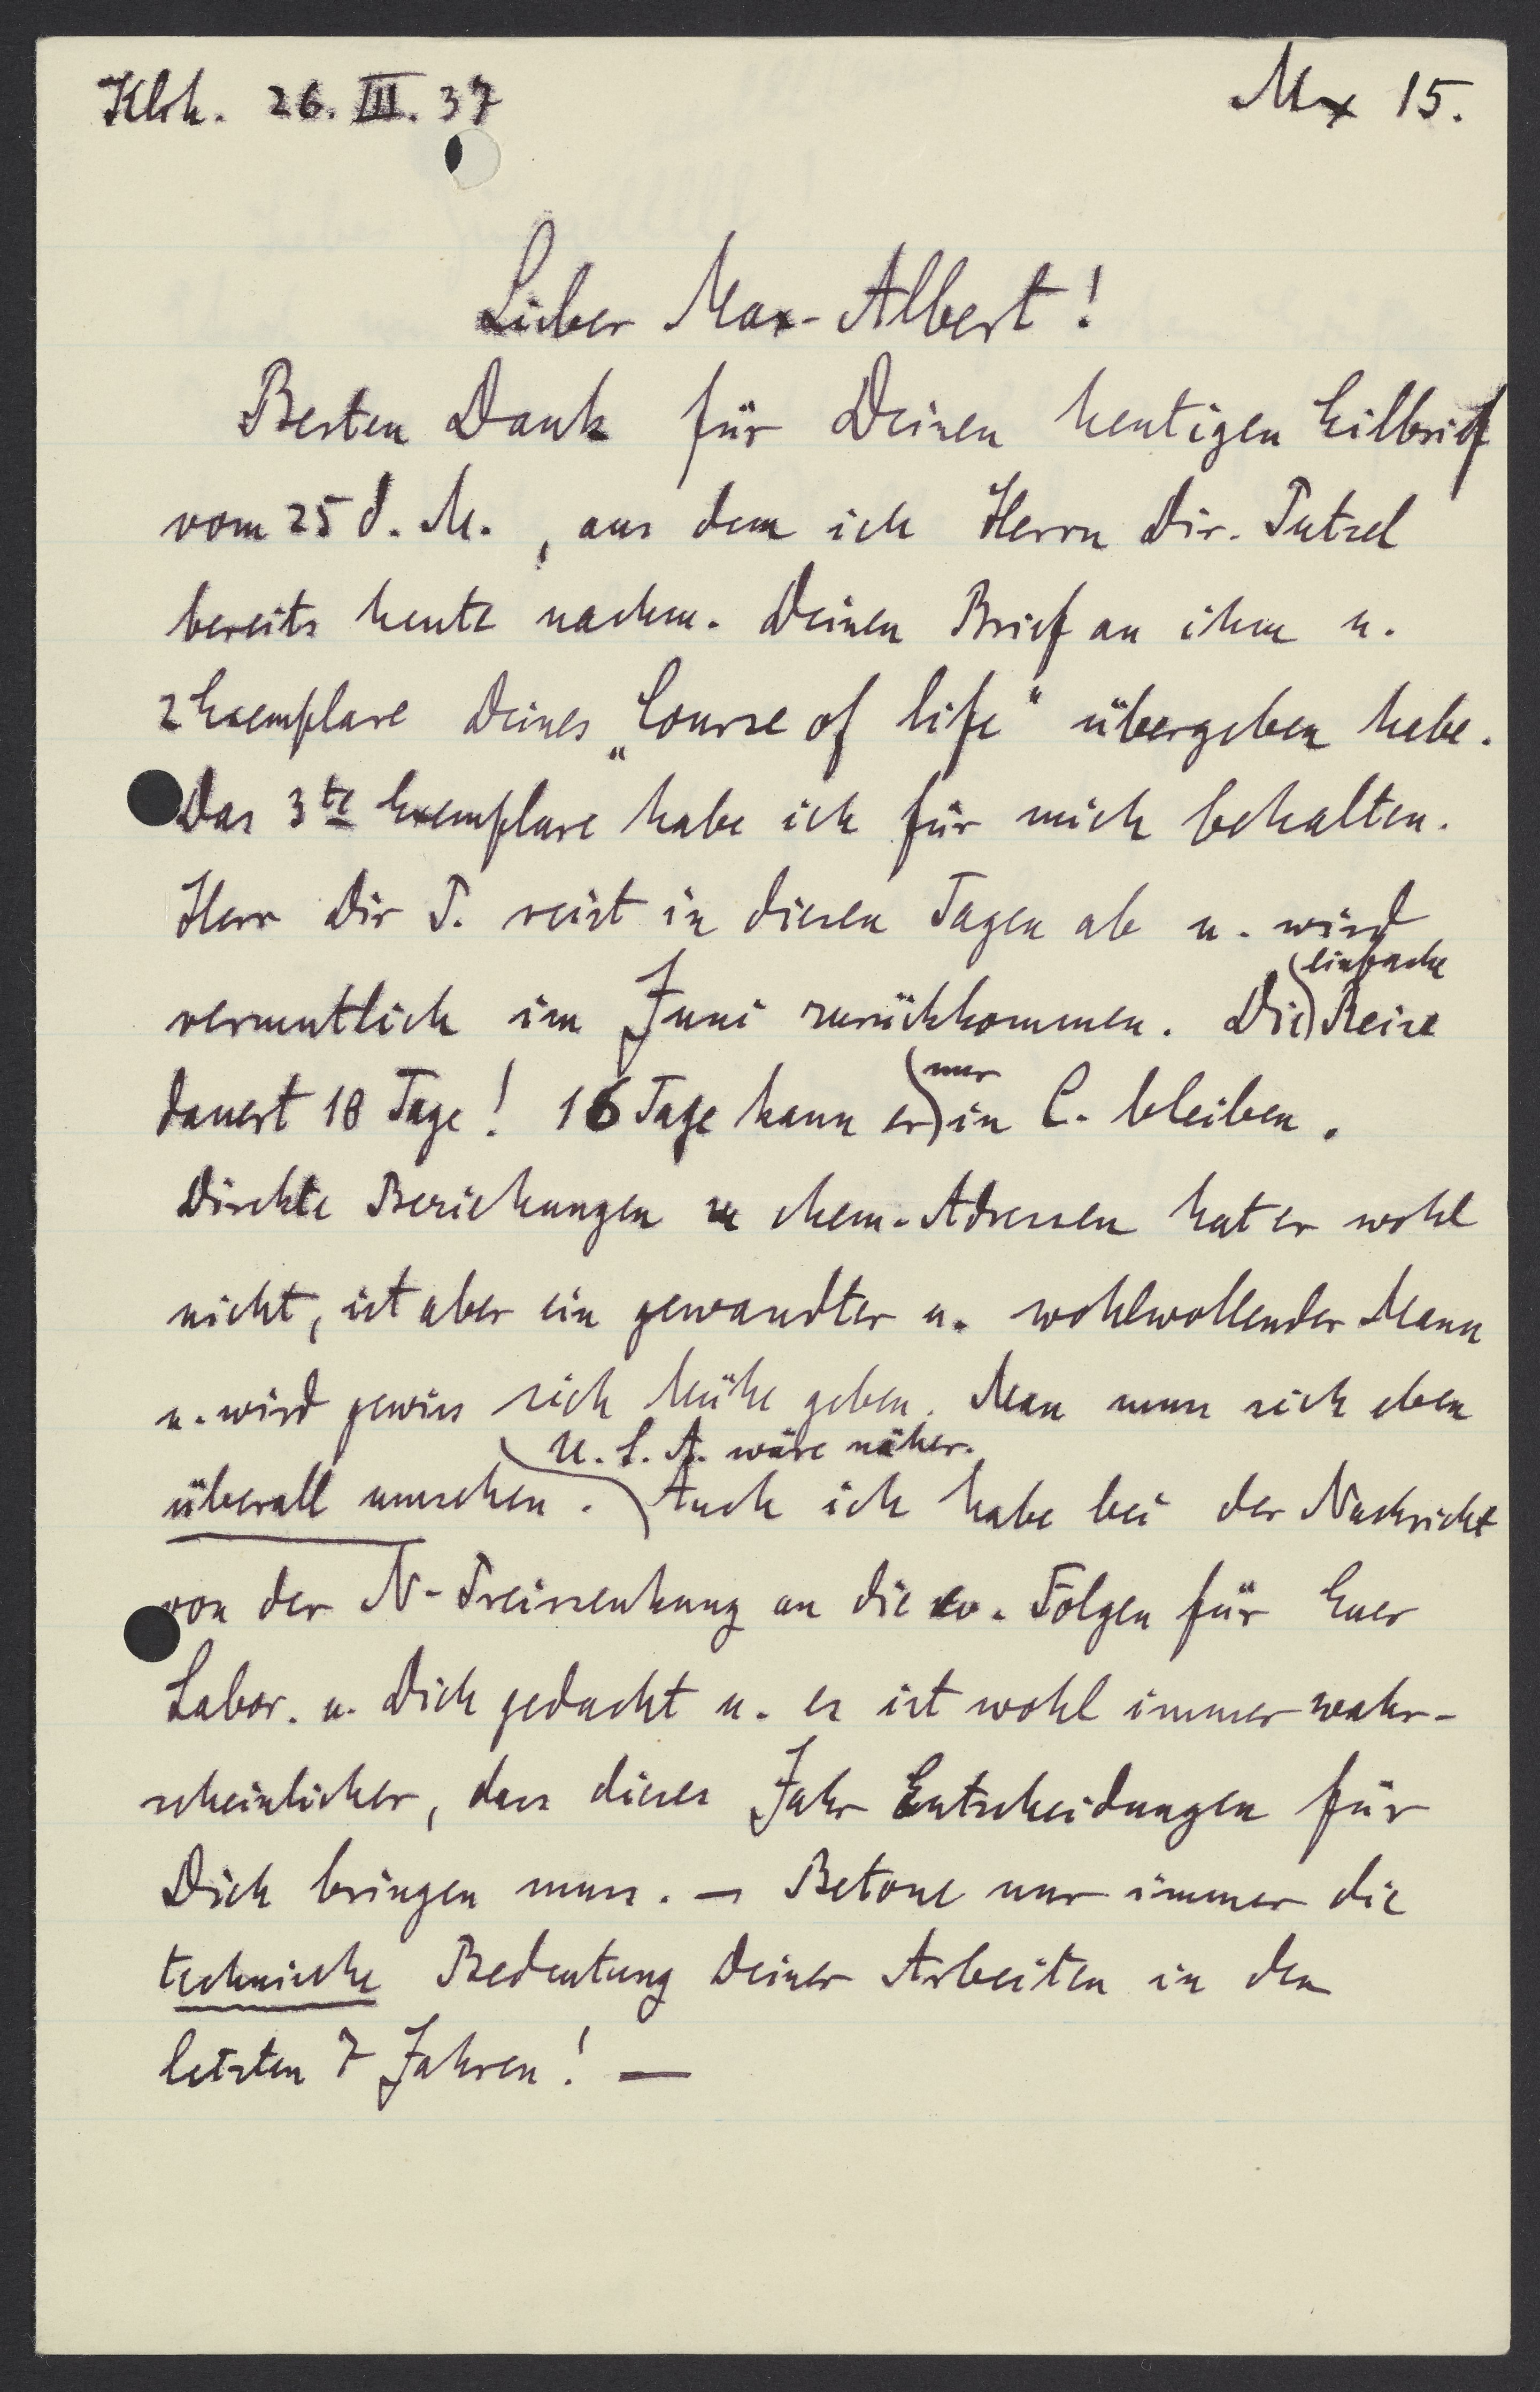 Klrh. 26. III. 37
Mx 15.
Lieber Max-Albert!
Besten Dank für Deinen heutigen Eilbrief
vom 25 d. M., aus dem ich Herrn Dir. Putzel
bereits heute nachm. Deinen Brief an ihm u.
2 Exemplare Deines „Course of life" übergeben habe.
Das 3te Exemplare habe ich für mich behalten.
Herr Dir P. reist in diesen Tagen ab u. wird
vermutlich im Juni zurückkommen. Die einfache Reise
dauert 18 Tage! 16 Tage kann er nur in C. bleiben.
Direkte Beziehungen zu chem. Adressen hat er wohl
nicht, ist aber ein gewandter u. wohlwollender Mann
u. wird gewiss sich Mühe geben. Man muss sich eben
überall umsehen. U. S. A. wäre näher. Auch ich habe bei der Nachricht
von der N-Preissenkung an die ev. Folgen für Euer
Labor. u. Dich gedacht u. es ist wohl immer wahr-
scheinlicher, dass dieses Jahr Entscheidungen für
Dich bringen muss. — Betone nur immer die
technische Bedeutung Deiner Arbeiten in den
letzten 7 Jahren! —